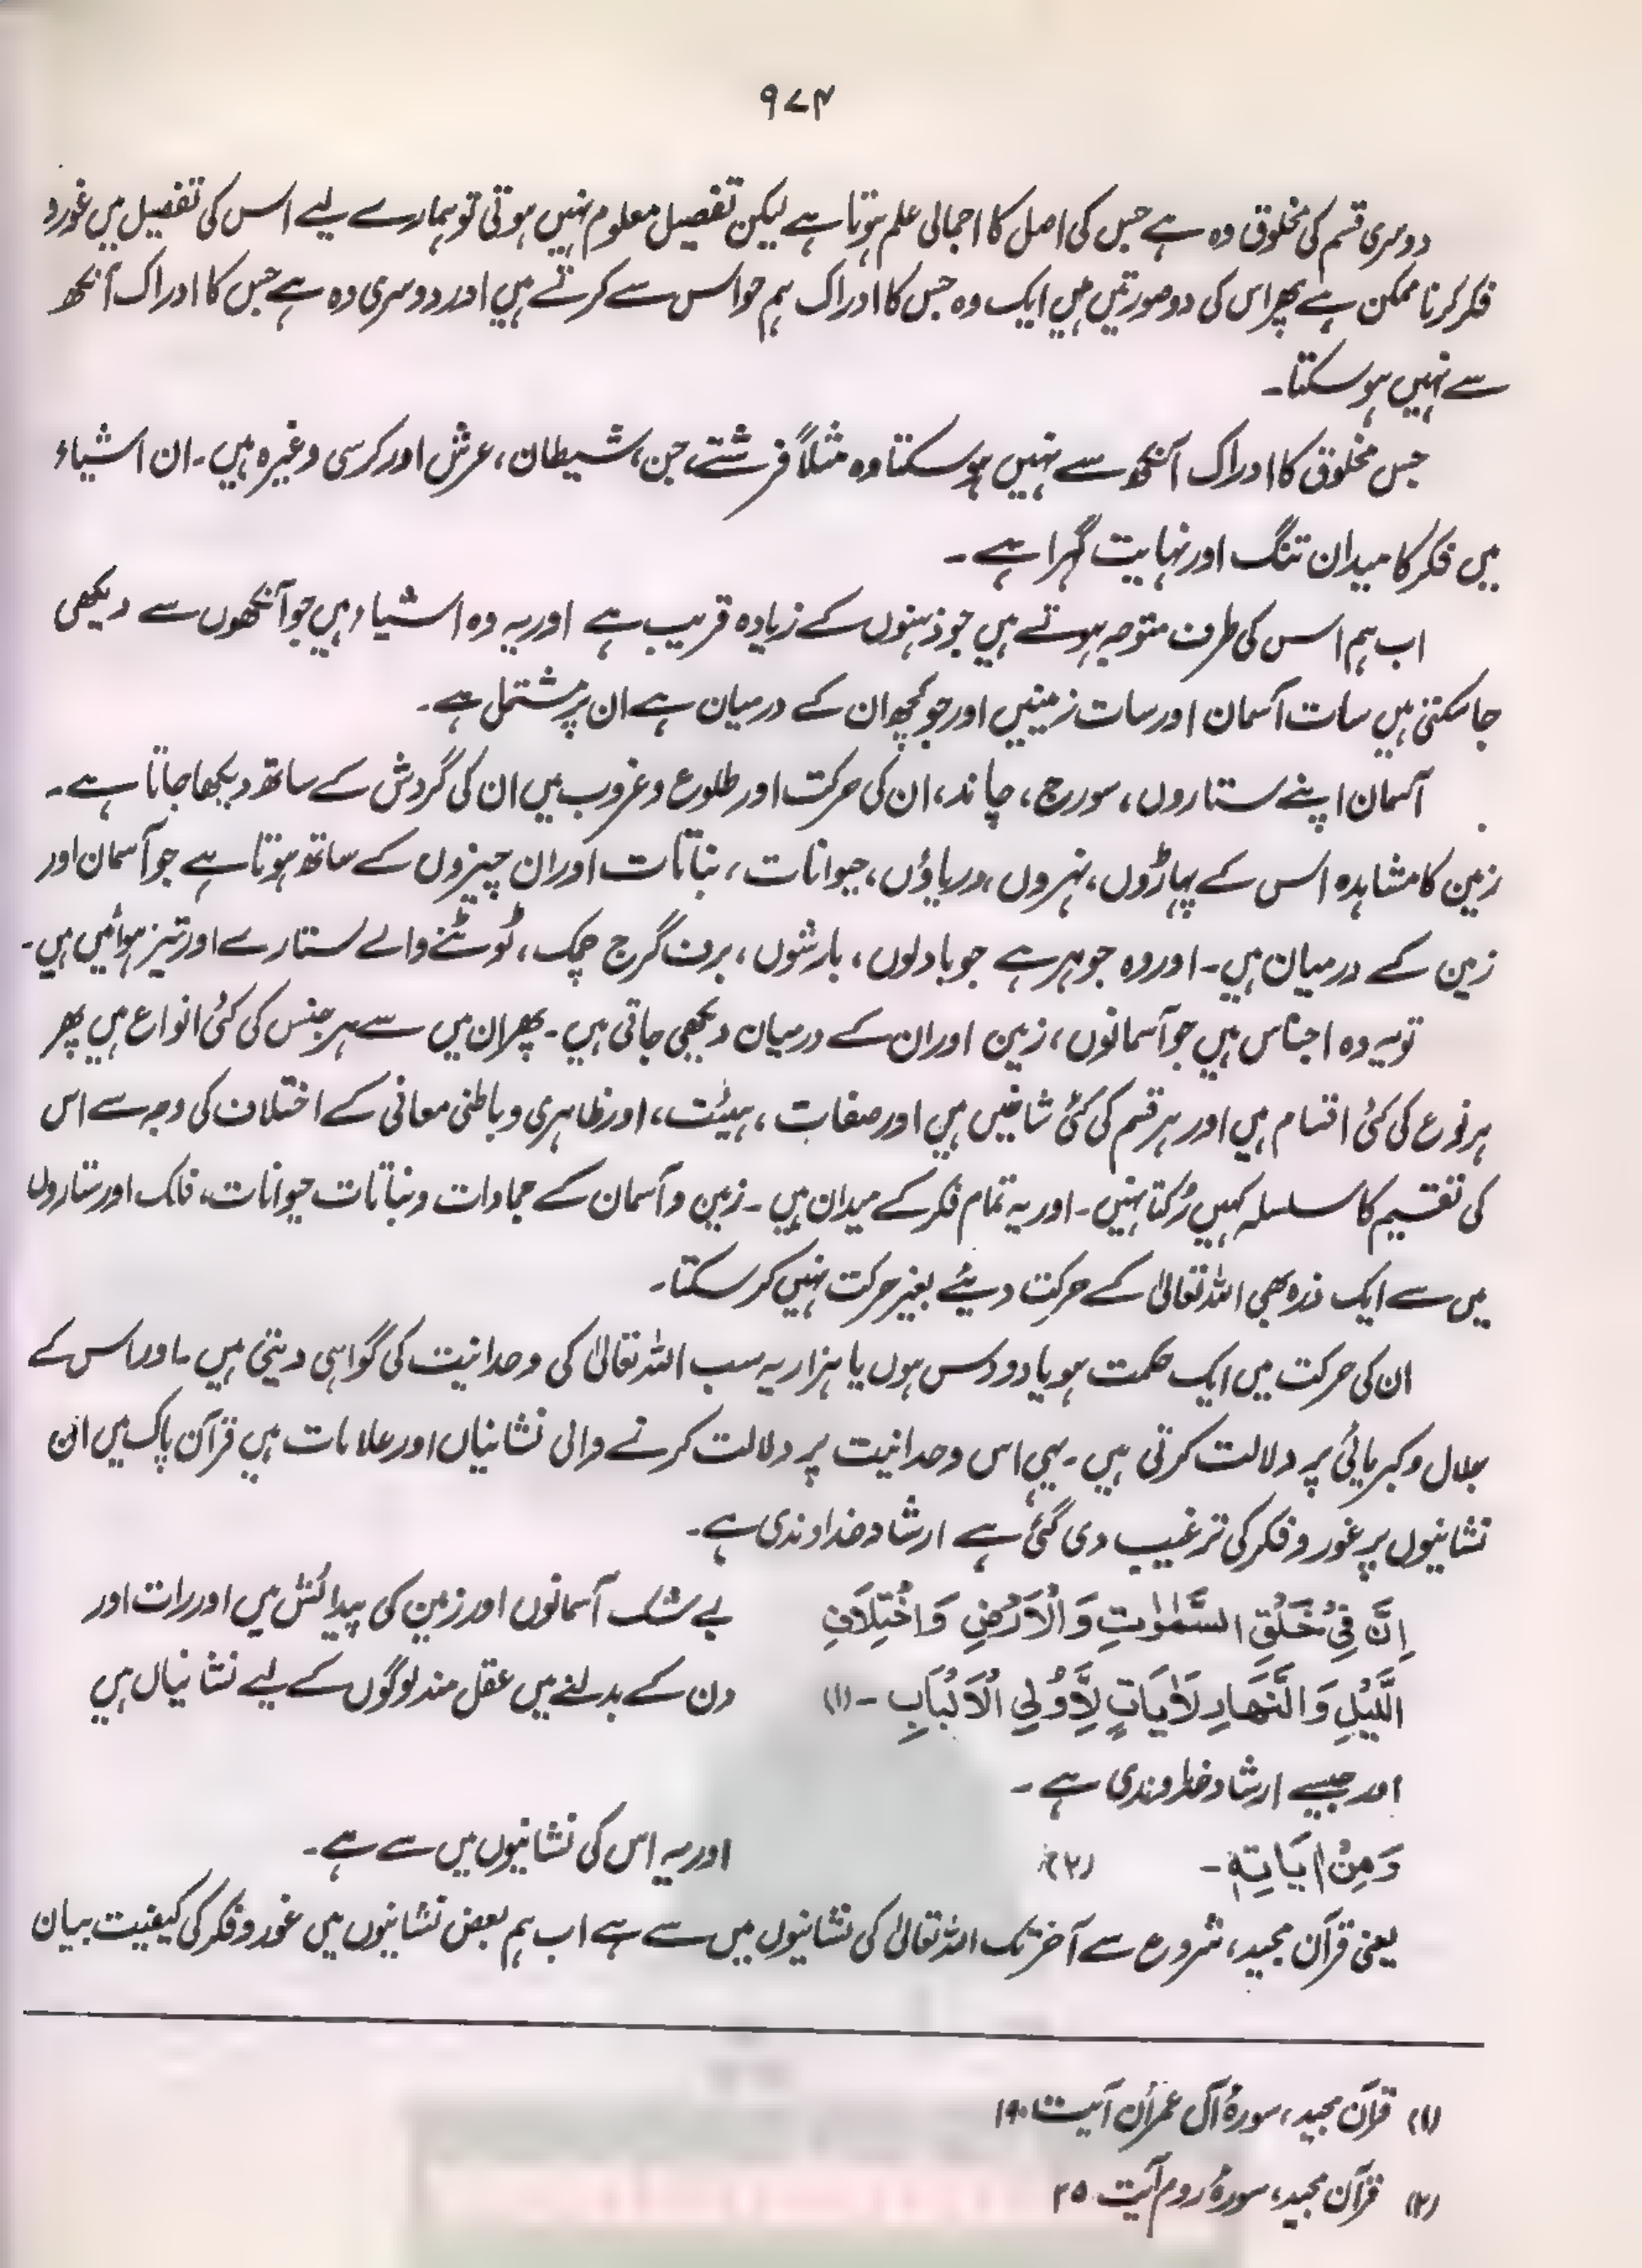 ۹۷۴
دوسری قسم کی مخلوق وہ ہے جس کی اصل کا اجمالی علم ہوتا ہے لیکن تفصیل معلوم نہیں ہوتی تو ہمارے لیے اس کی تفصیل میں غور و
فکر کرنا ممکن ہے پھر اس کی دو صورتیں ہیں ایک وہ جس کا ادراک ہم حواس سے کرتے ہیں اور دوسری وہ ہے جس کا ادراک آنکھ
سے نہیں ہو سکتا۔
جس مخلوق کا ادراک آنکھ سے نہیں ہو سکتا وہ مثلاً فرشتے، جن، شیطان، عرش اور کرسی وغیرہ ہیں۔ ان اشیاء
میں فکر کا میدان تنگ اور نہایت گہرا ہے۔
اب ہم اس کی طرف متوجہ ہوتے ہیں جو ذہنوں کے زیادہ قریب ہے اور یہ وہ اشیاء ہیں جو آنکھوں سے دیکھی
جا سکتی ہیں سات آسمان اور سات زمینیں اور جو کچھ ان کے درمیان ہے ان پر مشتمل ہے۔
آسمان اپنے ستاروں، سورج، چاند، ان کی حرکت اور طلوع و غروب میں ان کی گردش کے ساتھ دیکھا جاتا ہے۔
زمین کا مشاہدہ اس کے پہاڑوں، نہروں، دریاؤں، حیوانات، نباتات اور ان چیزوں کے ساتھ ہوتا ہے جو آسمان اور
زمین کے درمیان ہیں۔ اور وہ جوہر ہے جو بادلوں، بارشوں، برف گرج چمک، ٹوٹنے والے ستارے اور تیز ہوائیں ہیں۔
تو یہ وہ اجناس ہیں جو آسمانوں، زمین اور ان کے درمیان دیکھی جاتی ہیں۔ پھر ان میں سے ہر جنس کی کئی انواع ہیں پھر
ہر نوع کی کئی اقسام ہیں اور ہر قسم کی کئی شاخیں ہیں اور صفات، ہیئت، اور ظاہری و باطنی معانی کے اختلاف کی وجہ سے اس
کی تقسیم کا سلسلہ کہیں رُکتا نہیں۔ اور یہ تمام فکر کے میدان ہیں۔ زمین و آسمان کے جمادات و نباتات حیوانات، فلک اور ستاروں
میں سے ایک ذرہ بھی اللہ تعالیٰ کے حرکت دیئے بغیر حرکت نہیں کر سکتا۔
ان کی حرکت میں ایک حکمت ہو یا دو دس ہوں یا ہزار یہ سب اللہ تعالیٰ کی وحدانیت کی گواہی دیتی ہیں۔ اور اس کے
جلال و کبریائی پر دلالت کرتی ہیں۔ یہی اس وحدانیت پر دلالت کرنے والی نشانیاں اور علامات ہیں قرآن پاک میں ان
نشانیوں پر غور و فکر کی ترغیب دی گئی ہے ارشاد خداوندی ہے۔
اِنَّ فِیْ خَلْقِ السَّمٰوٰتِ وَالْاَرْضِ وَاخْتِلَافِ
الَّیْلِ وَالنَّھَارِ لَاٰیَاتٍ لِّاُولِی الْاَلْبَابِ ۔(۱)
بے شک آسمانوں اور زمین کی پیدائش میں اور رات اور
دن کے بدلنے میں عقل مند لوگوں کے لیے نشانیاں ہیں
اور جیسے ارشاد خداوندی ہے۔
وَمِنْ اٰیَاتِہٖ۔ (۲)
اور یہ اس کی نشانیوں میں سے ہے۔
یعنی قرآن مجید، شروع سے آخر تک اللہ تعالیٰ کی نشانیوں میں سے ہے اب ہم بعض نشانیوں میں غور و فکر کی کیفیت بیان
(۱) قرآن مجید، سورۂ آل عمران آیت ۱۹۰
(۲) قرآن مجید، سورۂ روم آیت ۲۵